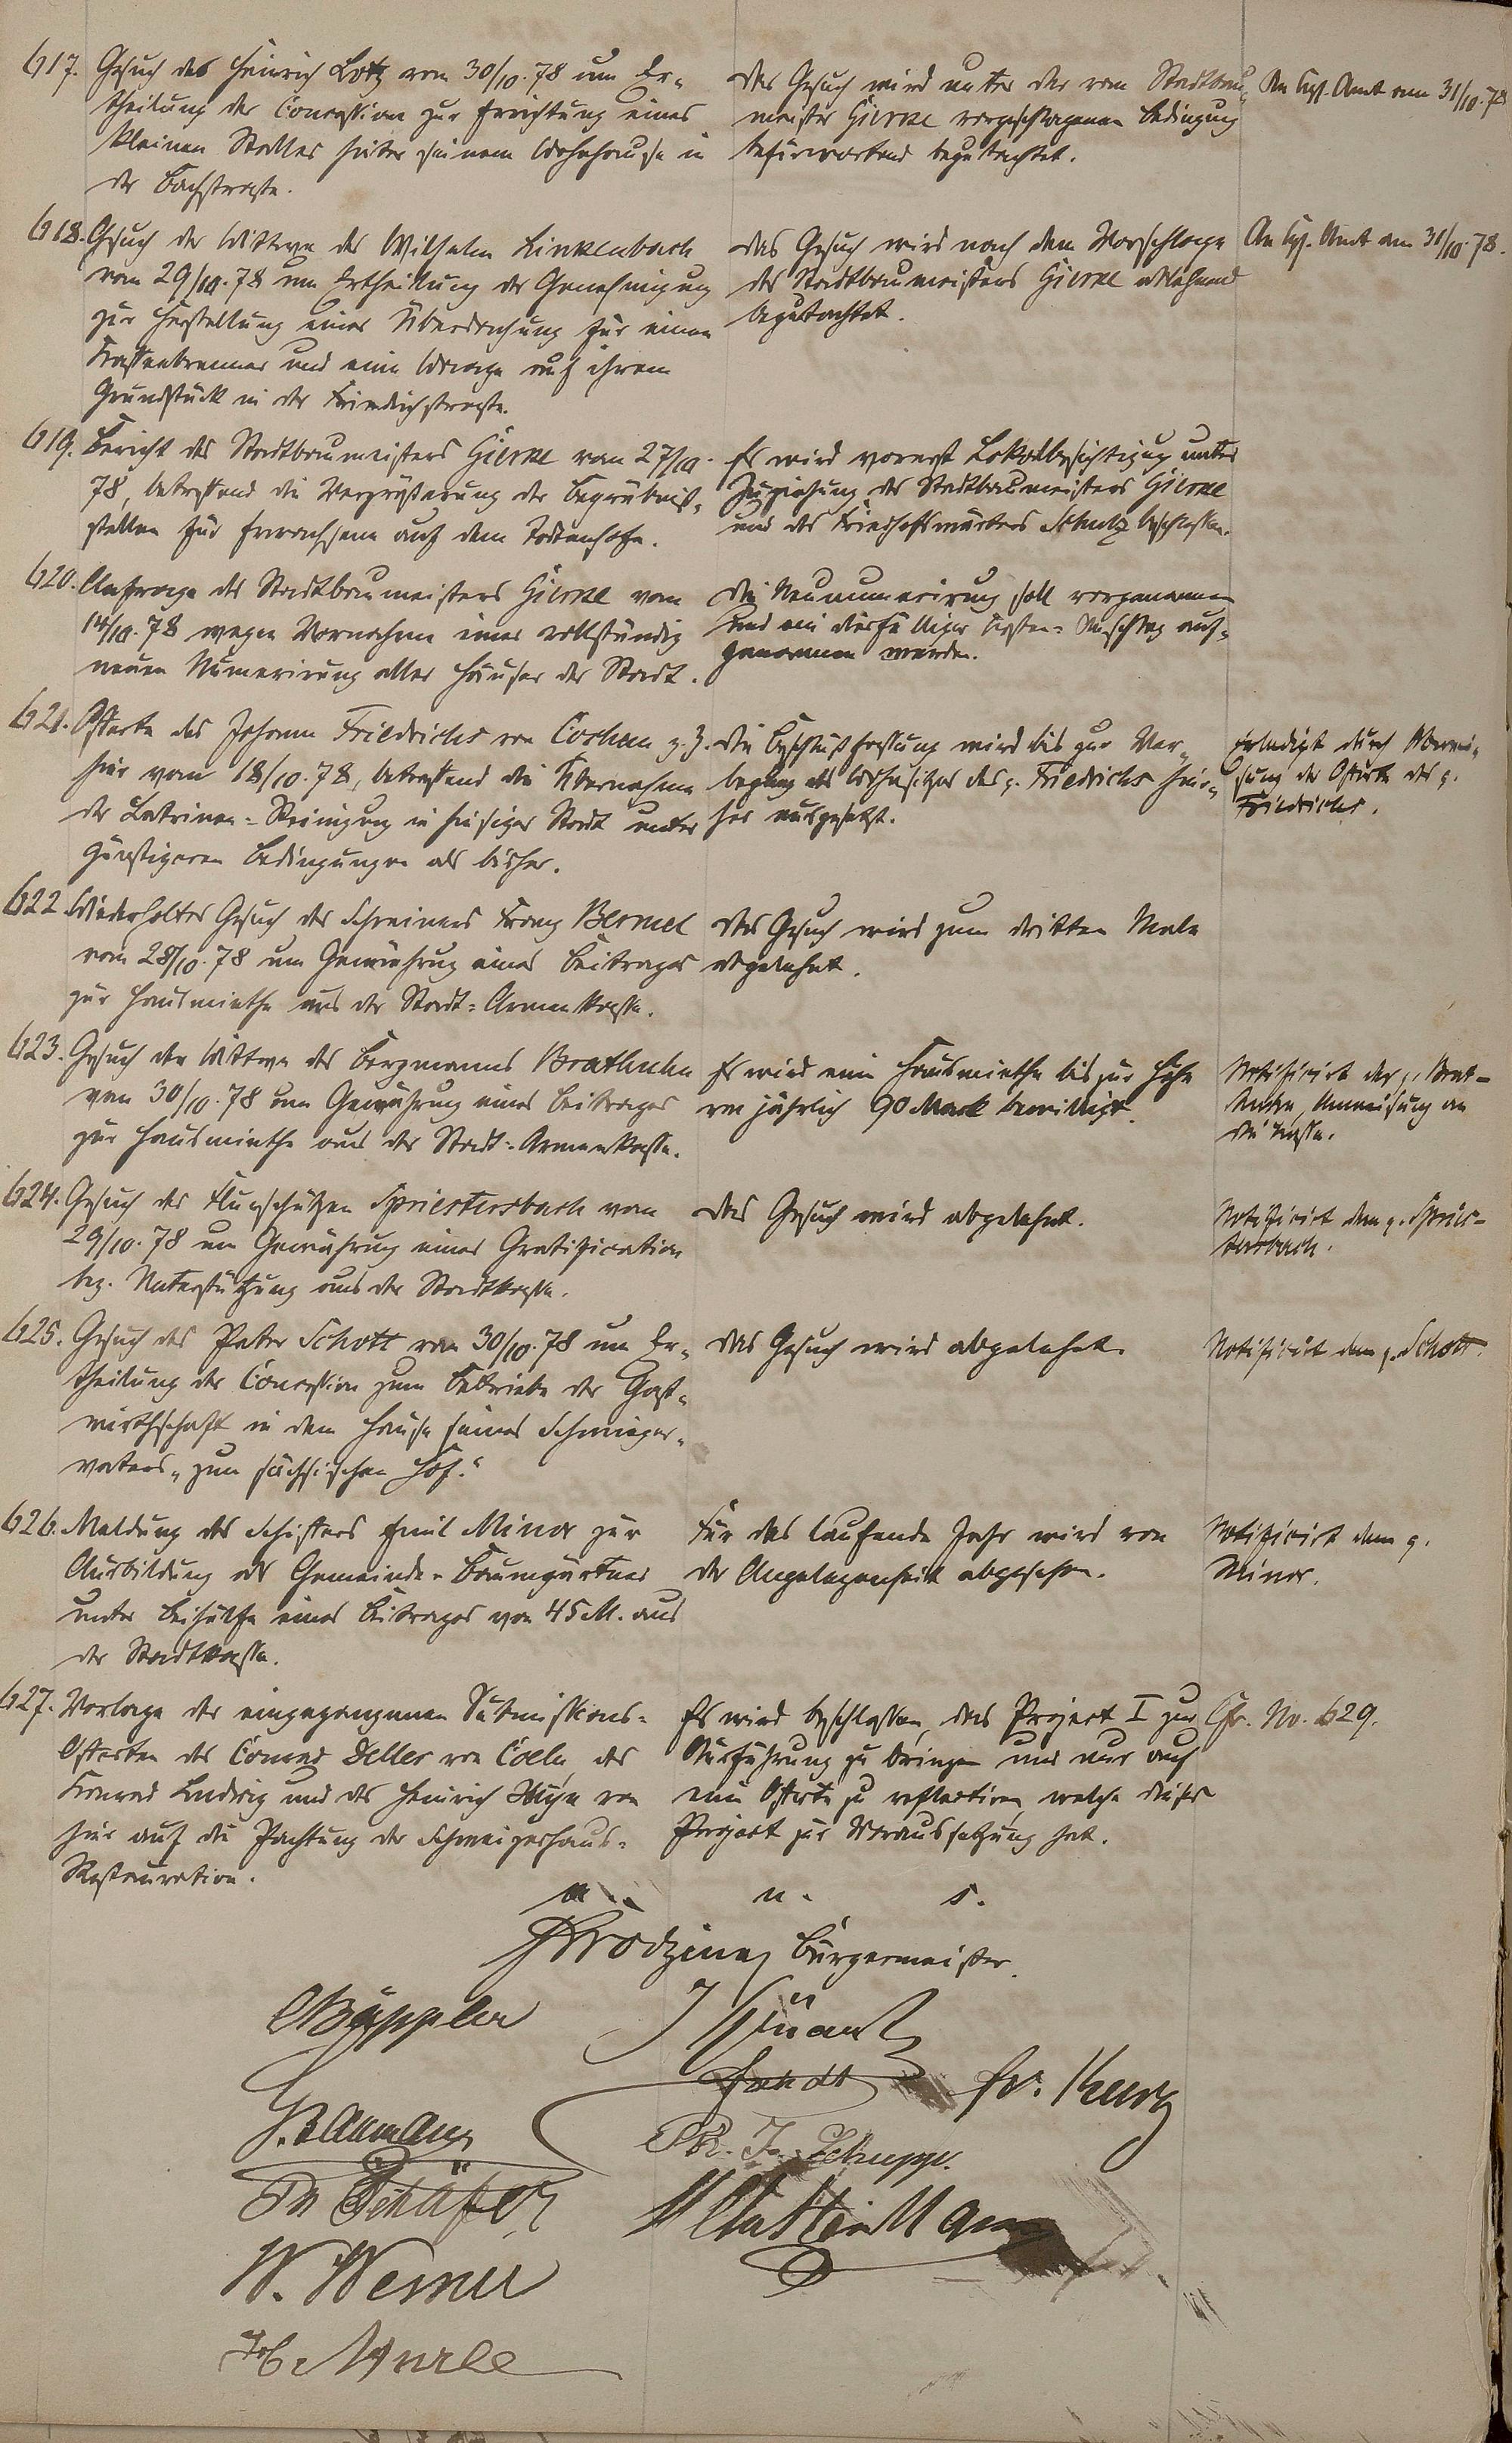 617. Gesuch des Heinrich Lotz vom 30/10. 78 um Er-
theilung der Concession zur Errichtung eines
kleinen Stalles hinter seinem Wohnhause in
der Bachstrasse.
das Gesuch wird unter der vom Stadtbau-
meister Gierke vorgeschlagenen Bedingung
befürwortend begutachtet.
An Kgl. Amt am 31/10. 78
618. Gesuch der Wittwe des Wilhelm Linkenbach
vom 29/10. 78 um Ertheilung der Genehmigung
zur Herstellung einer Überdachung für einen
Kasten und eine Waage auf ihrem
Grundstück in der Friedrichstrasse.
das Gesuch wird nach dem Vorschlage
des Stadtbaumeisters Gierke ablehnend
begutachtet.
An Kgl. Amt am 31/10. 78.
619. Bericht des Stadtbaumeisters Gierke vom 27/10.
78, betreffend die Vergrößerung der Begräbniß-
stellen für Erwachsene auf dem Todtenhofe.
Es wird vorerst Lokalbesichtigung unter
Zuziehung des Stadtbaumeisters Gierke
und des Friedhofswärters Schulz beschlossen.
620. Anfrage des Stadtbaumeisters Gierke vom
14/10. 78 wegen Vornahme einer vollständig
neuen Numerirung aller Häuser der Stadt.
die Neunumerirung soll vorgenommen
und ein desfallsiger Kosten-Anschlag auf-
genommen werden.
621. Offerte des Johann Friedrichs von Cochem z. Z.
hier vom 18/10. 78, betreffend die Übernahme
der Latrinen-Reinigung in hiesiger Stadt unter
günstigeren Bedingungen als bisher.
die Beschlußfassung wird bis zur Ver-
legung des Wohnsitzes des p. Friedrichs hier-
her ausgesetzt.
Erledigt durch Abwei-
sung der Offerte des p.
Friedrichs.
622. Wiederholtes Gesuch des Schreiners Franz Bermel
vom 28/10. 78 um Gewährung eines Beitrages
zur Hausmiethe aus der Stadt-Armenkasse.
das Gesuch wird zum dritten Male
abgelehnt.
623. Gesuch der Wittwe des Bergmanns Brathuhn
vom 30/10. 78 um Gewährung eines Beitrages
zur Hausmiethe aus der Stadt-Armenkasse.
Es wird eine Hausmiethe bis zur Höhe
von jährlich 90 Mark bewilligt.
Notificirt der p. Brat-
huhn, Anweisung an
die Kasse.
624. Gesuch des Flurschützen Spriestersbach vom
29/10. 78 um Gewährung einer Gratification
bez. Unterstützung aus der Stadtkasse.
das Gesuch wird abgelehnt.
Notificirt dem p. Spries-
tersbach.
625. Gesuch des Peter Schott vom 30/10. 78 um Er-
theilung der Concession zum Betriebe der Gast-
wirthschaft in dem Hause seines Schwieger-
vaters „zum sächsischen Hof."
das Gesuch wird abgelehnt.
Notificirt dem p. Schott.
626. Meldung des Schiffers Emil Minor zur
Ausbildung als Gemeinde-Baumgärtner
unter Beihülfe eines Beitrages von 45 M. aus
der Stadtkasse.
Für das laufende Jahr wird von
der Angelegenheit abgesehen.
Notificirt dem p.
Minor.
627. Vorlage der eingegangenen Submissions-
Offerten des Conrad Deller von Coeln, des
Konrad Ludwig und des Heinrich von
hier auf die Pachtung der Schweizerhaus-
Restauration.
Es wird beschlossen, das Project I zur
Ausführung zu bringen und nur auf
eine Offerte zu reflectiren, welche dieses
Project zur Voraussetzung hat.
Cfr. No. 629.
u. s.
Bürgermeister.
Fr. Kurz
G. Baumann
Ph. J. Schupp.
Ph Schäfer
W. Werner